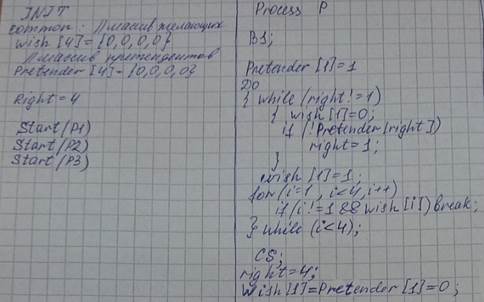 INIT
common: //массив желающих
wish [4]={0,0,0,0}
//массив претендентов
Pretender [4]={0,0,0,0}
Right = 4
Start(P1)
Start(P2)
Start(P3)
Process P
B1;
Pretender [1]=1
Do
{ while (right!=1)
{ wish [1]=0;
if (!Pretender[right])
right=1;
}
wish [1]=1;
for (i=1, i<4, i++)
if (i!=1 && wish [i]) break;
} while (i<4);
CS;
right=4;
Wish [1]=Pretender [1]=0;